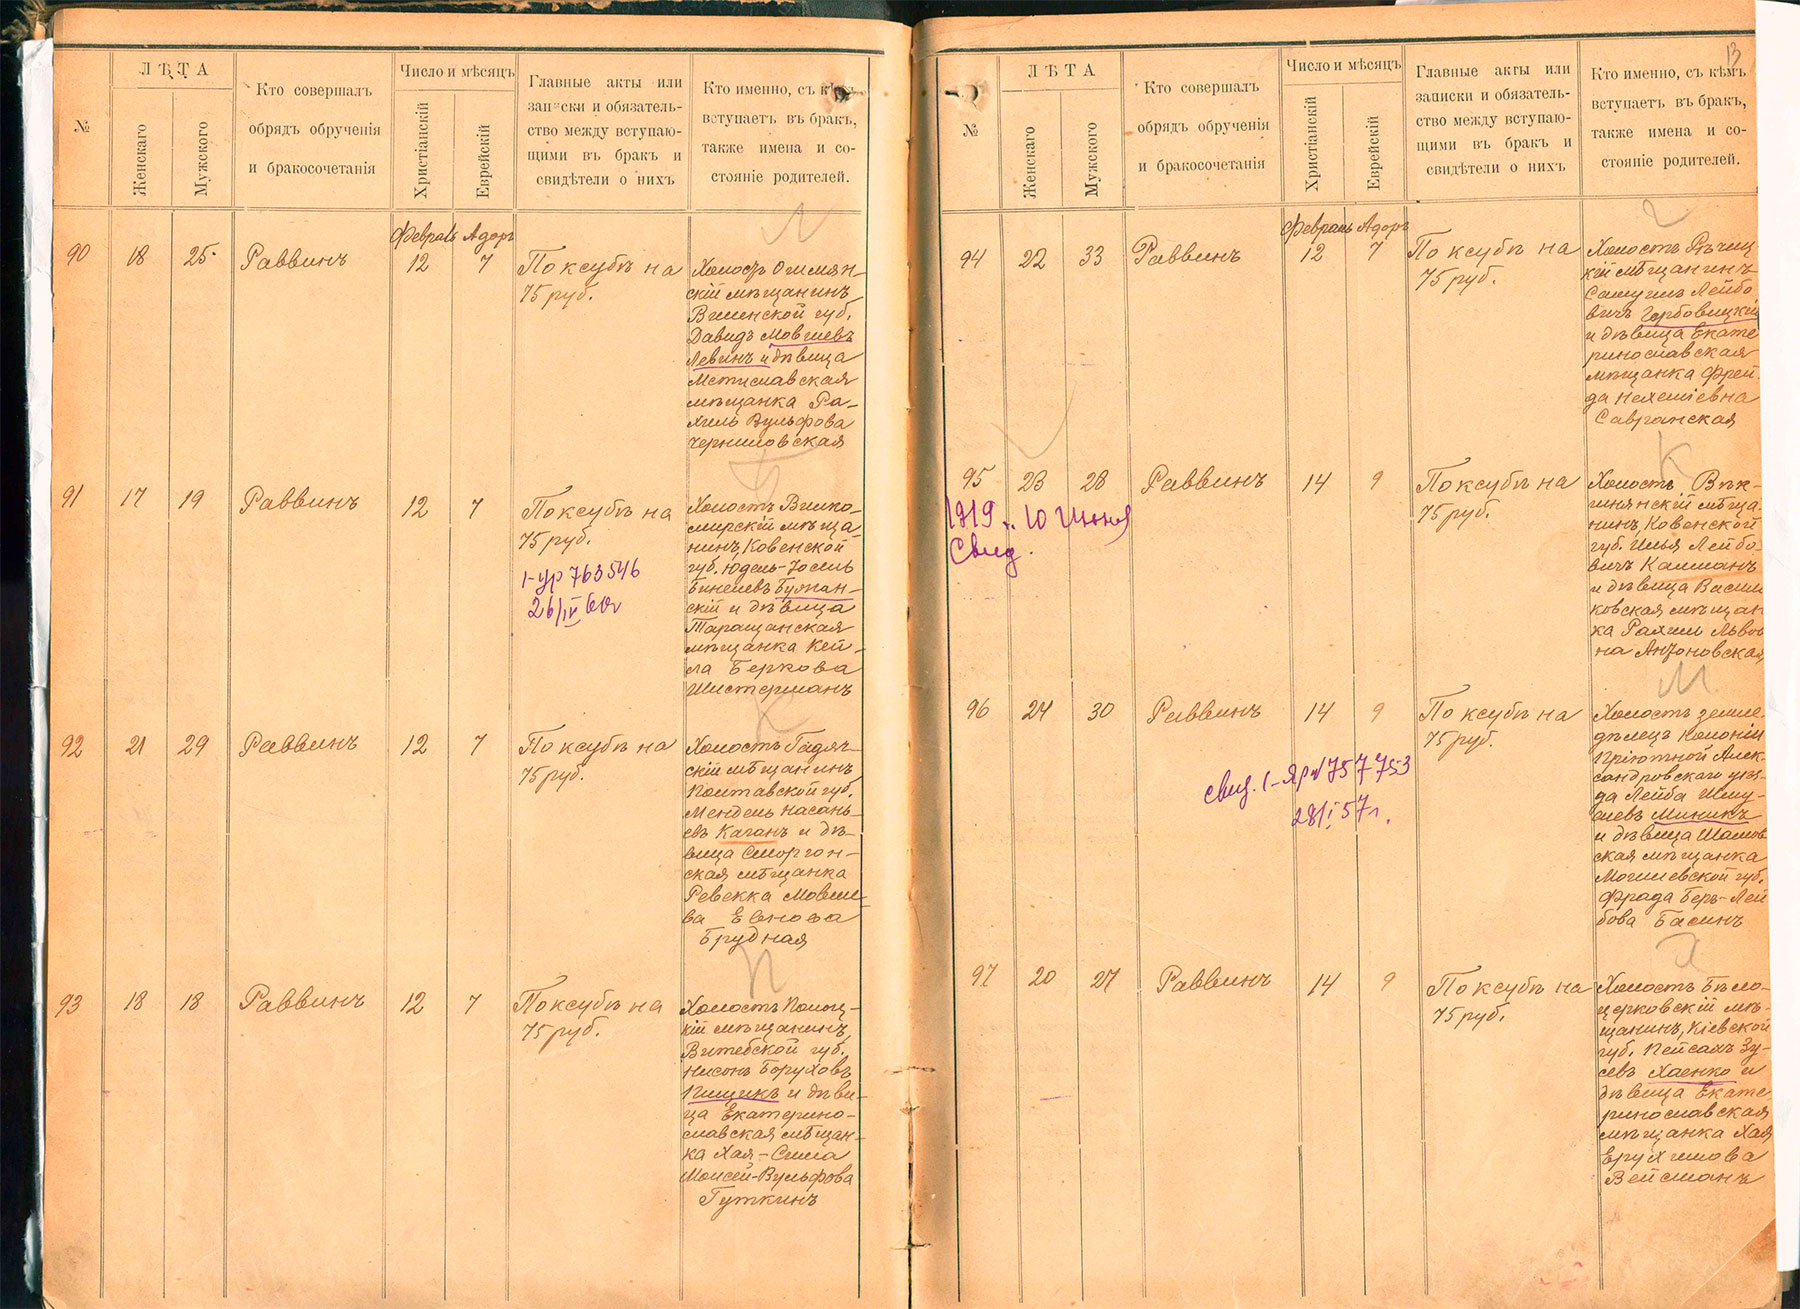 №
ЛѢТА
Женскаго
Мужского
Кто совершалъ
обрядъ обрученія
и бракосочетанія
Число и мѣсяцъ
Христіанскій
Еврейскій
Главные акты или
записки и обязатель-
ство между вступаю-
щими въ бракъ и
свидѣтели о нихъ
Кто именно, съ кѣмъ
вступаетъ въ бракъ,
также имена и со-
стояніе родителей.
Февраль Адоръ
90 18 25 Раввинъ 12 7
По ксубѣ на
75 руб.
Л
Холостъ Ошмян-
скій мѣщанинъ,
Виленской губ.
Давидъ Мовшевъ
Левинъ и дѣвица
Мстиславская
мѣщанка Ра-
хиль Вульфова
Черниловская
91 17 19 Раввинъ 12 7
По ксубѣ на
75 руб.
763546
26/IV 60г
Б
Холостъ Вилко-
мирскій мѣща-
нинъ, Ковенской
губ. Юдель-Іосель
Бинешевъ
скій и дѣвица
Таращанская
мѣщанка Кей-
ла Беркова
Шистерманъ
92 21 29 Раввинъ 12 7
По ксубѣ на
75 руб.
К
Холостъ Гадяч-
скій мѣщанинъ,
Полтавской губ.
Мендель Насань-
евъ Каганъ и дѣ-
вица Сморгон-
ская мѣщанка
Ревекка Мовше-
ва Евнова
Брудная
93 18 18 Раввинъ 12 7
По ксубѣ на
75 руб.
П
Холостъ Полоц-
кій мѣщанинъ,
Витебской губ.
Нисонъ Боруховъ
Пищикъ и дѣви-
ца Екатерино-
славская мѣщан-
ка Хая-Сима
Моисей-Вульфова
Гуткинъ
13
№
ЛѢТА
Женскаго
Мужского
Кто совершалъ
обрядъ обрученія
и бракосочетанія
Число и мѣсяцъ
Христіанскій
Еврейскій
Главные акты или
записки и обязатель-
ство между вступаю-
щими въ бракъ и
свидѣтели о нихъ
Кто именно, съ кѣмъ
вступаетъ въ бракъ,
также имена и со-
стояніе родителей.
Февраль Адоръ
94 22 33 Раввинъ 12 7
По ксубѣ на
75 руб.
Г
Холостъ Рѣчиц-
кій мѣщанинъ
Самуилъ Лейбо
вичъ Горбовицкій
и дѣвица Екате
ринославская
мѣщанка Фрей-
да Нехеміевна
Савранская
95 23 28 Раввинъ 14 9
По ксубѣ на
75 руб.
1919 г. 10 Июня
Свид.
К
Холостъ Вѣк-
шнянскій мѣща-
нинъ, Ковенской
губ. Илья Лейбо-
вичъ Калманъ
и дѣвица Васил
ковская мѣщан
ка Рахиль Львов
на Антоновская
96 24 30 Раввинъ 14 9
По ксубѣ на
75 руб.
свид. 757753
28/I 57г.
М
Холостъ земле-
дѣлецъ колоніи
Пріютной Алек-
сандровскаго уѣз-
да Лейба Шму-
левъ Миникъ
и дѣвица Шклов
ская мѣщанка
Могилевской губ.
Фрада Беръ-Лей
бова Басинъ
97 20 27 Раввинъ 14 9
По ксубѣ на
75 руб.
Х
Холостъ Бѣло-
церковскій мѣ-
щанинъ, Кіевской
губ. Пейсахъ Зу-
севъ Хаенко и
дѣвица Екате
ринославская
мѣщанка Хая
Ерухимова
Вейсманъ